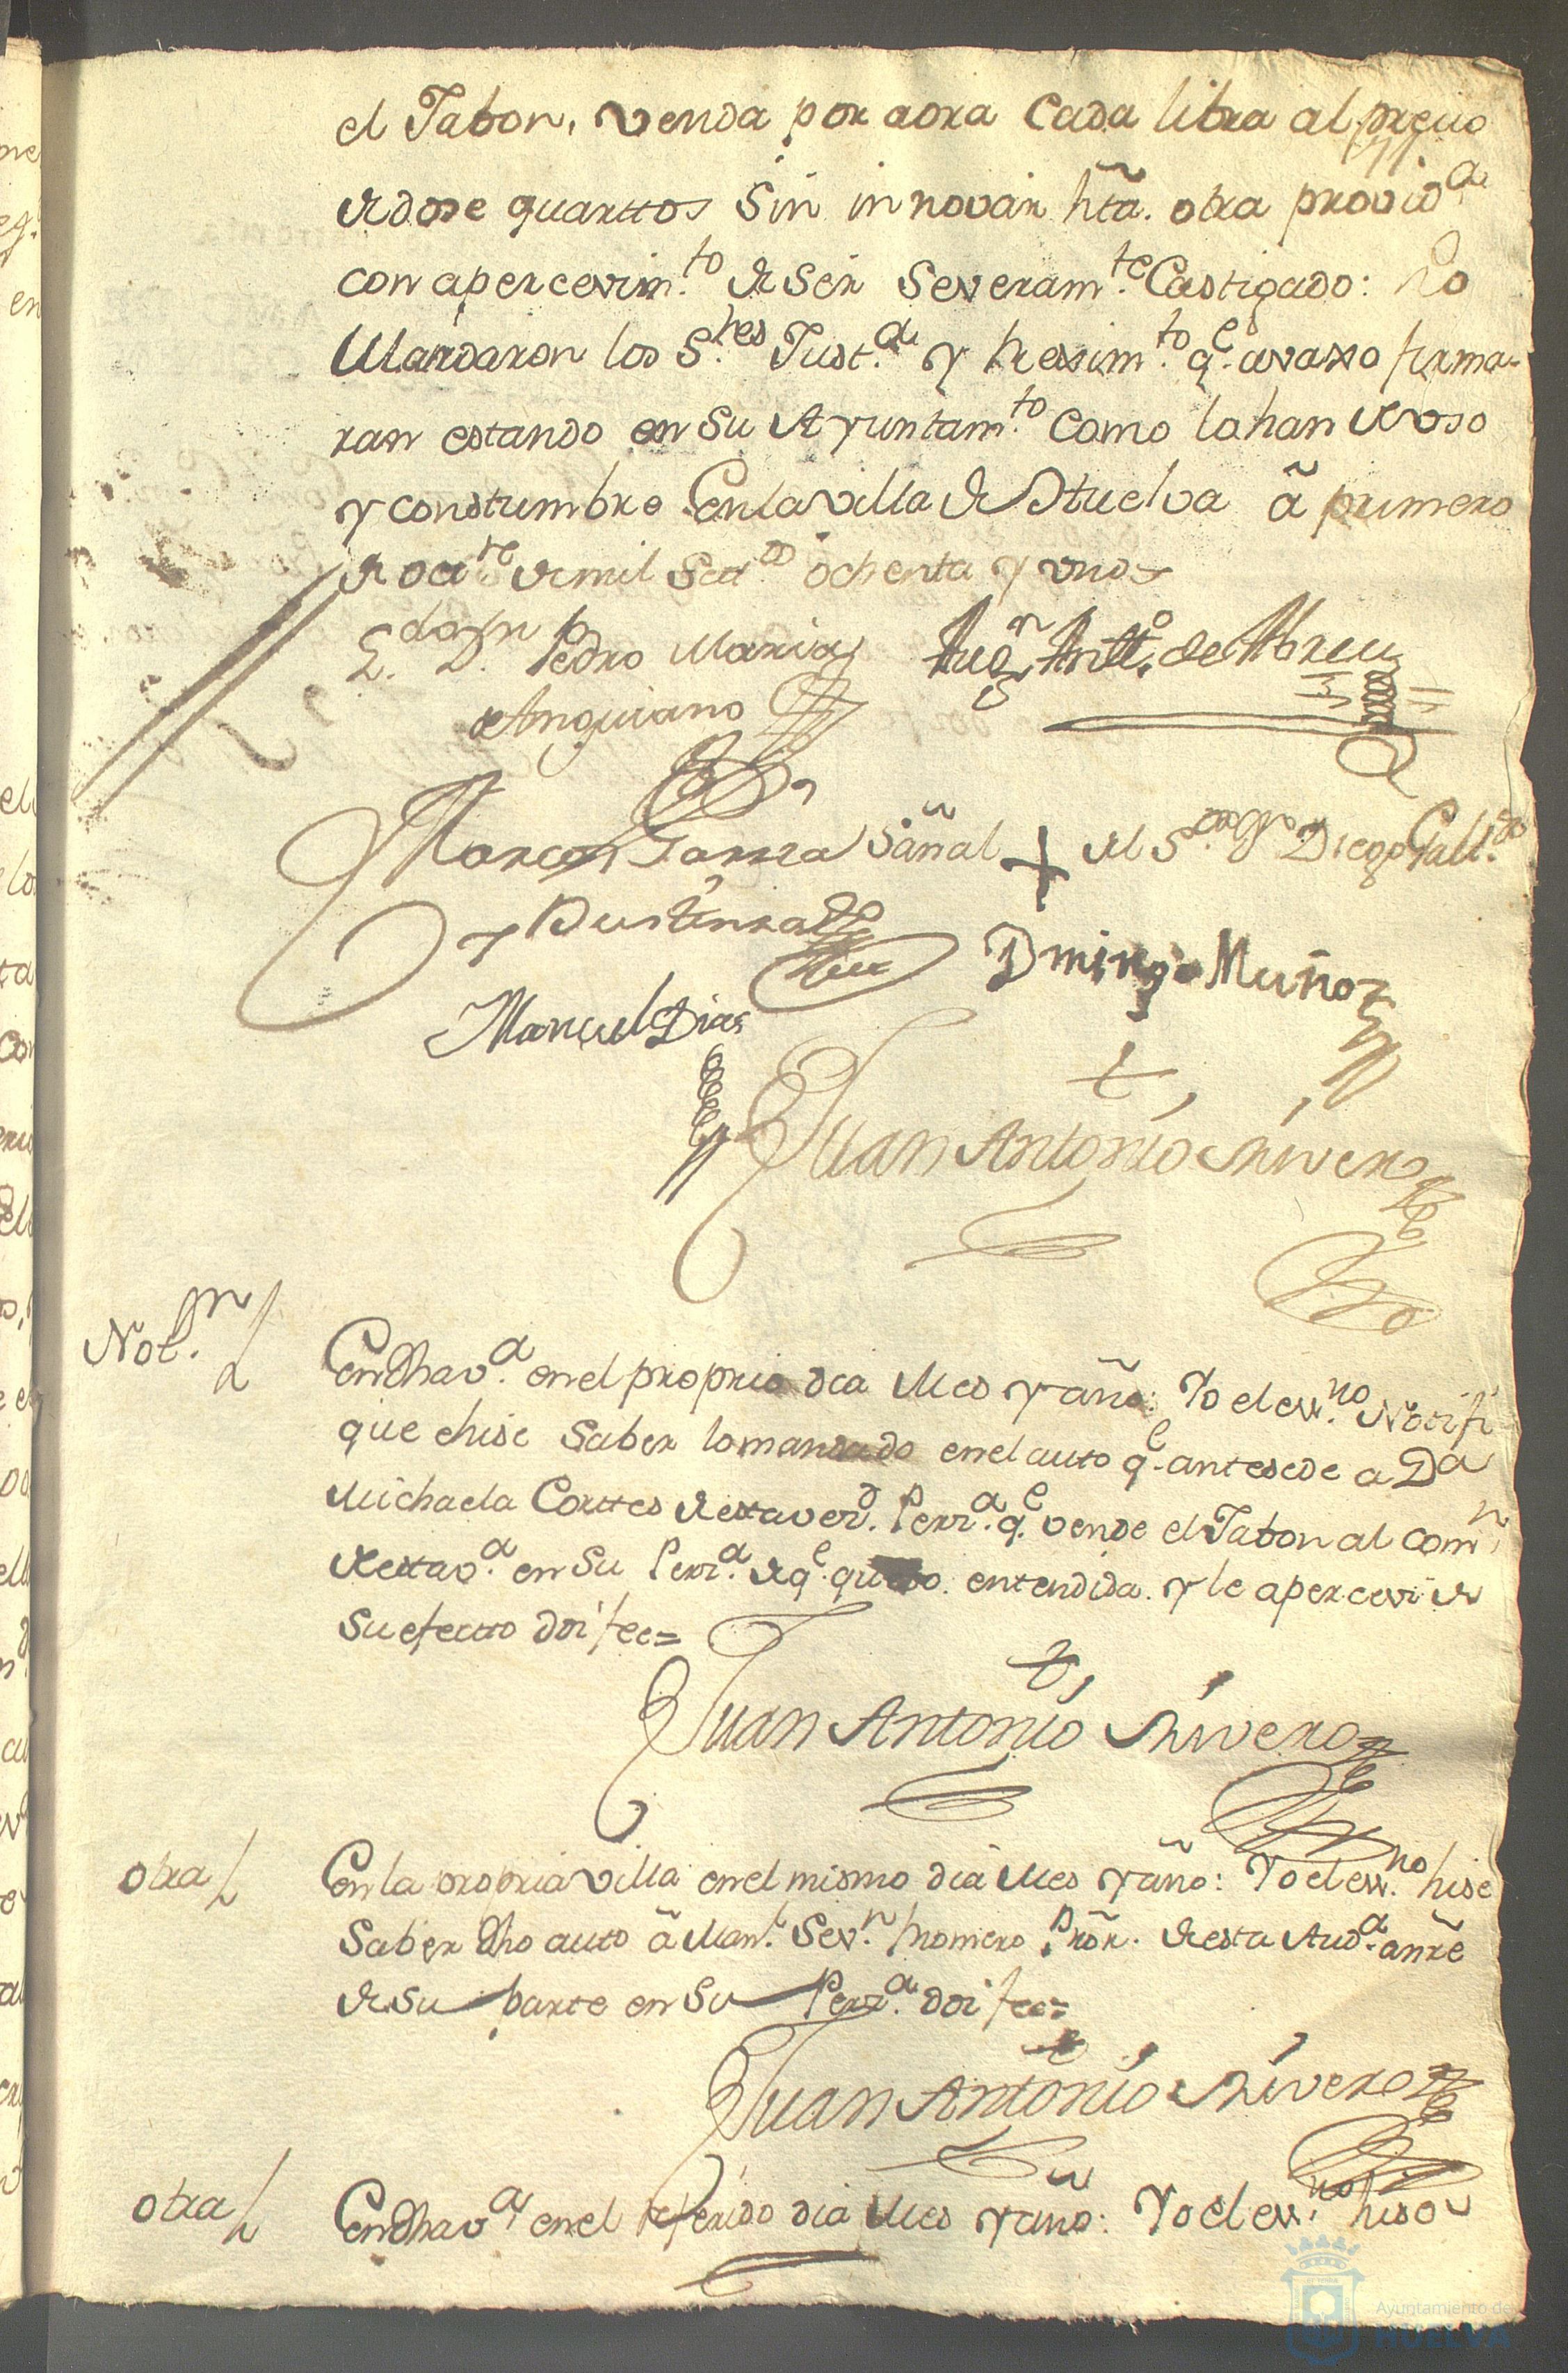 el Jabon, venda por aora cada libra al precio
de dose quarttos sin innovar hta. otra provid.a
con apercevim.to de ser severam.te Castigado: Lo
Mandaron los S.res Just.a y Reximt.to q.e avaxo firma-
ran estando en su Ayuntam.to como lo han de vso
y constumbre En la villa de Huelva ã primero
de oct.re de mil set.os ochenta y vno =
L. do D.n Pedro Maria
de Anguiano
Aug.n Antt.o de Abreu
Marcos Garzia Sañal
y Bustinza
del S.or Diego Gall.do
Manuel Dias
Domingo Muñoz
Juan Antonio Rivero
Not.n
En dha v.a en el proprio dia Mes y año: Yo el ess.no Notifi-
que e hise saber lo mandado en el auto q.e antesede a D.a
Michaela Corttes de esta vez.d Perz.a q.e vende el Jabon al com.n
de esta v.a en su Perz.a de q.e quedo entendida. y le apercevi de
su efecto doi fee=
Juan Antonio Rivero
otra
En la propria villa en el mismo dia Mes y año: Yo el ess.no hise
saber dho auto ã Man.l Sev.n Romero Pror. de esta Aud.a anre
de su parte en su Perz.a doi fee=
Juan Antonio Rivero
otra
En dha v.a en el referido dia Mes y año: Yo el ess.no hise
Ayuntamiento de
HUELVA